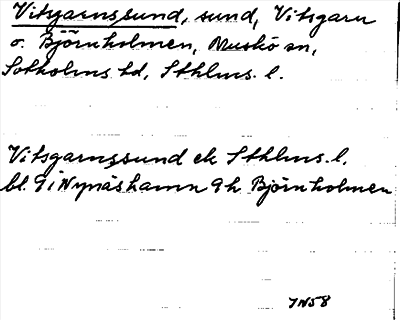 Vitsgarnssund, sund, Vitsgarn
o. Björnholmen, Muskö sn,
Sotholms hd, Sthlms. l.
Vitsgarnssund ek Sthlms. l.
bl. 9 i Nynäshamn 9 h Björnholmen
JN58